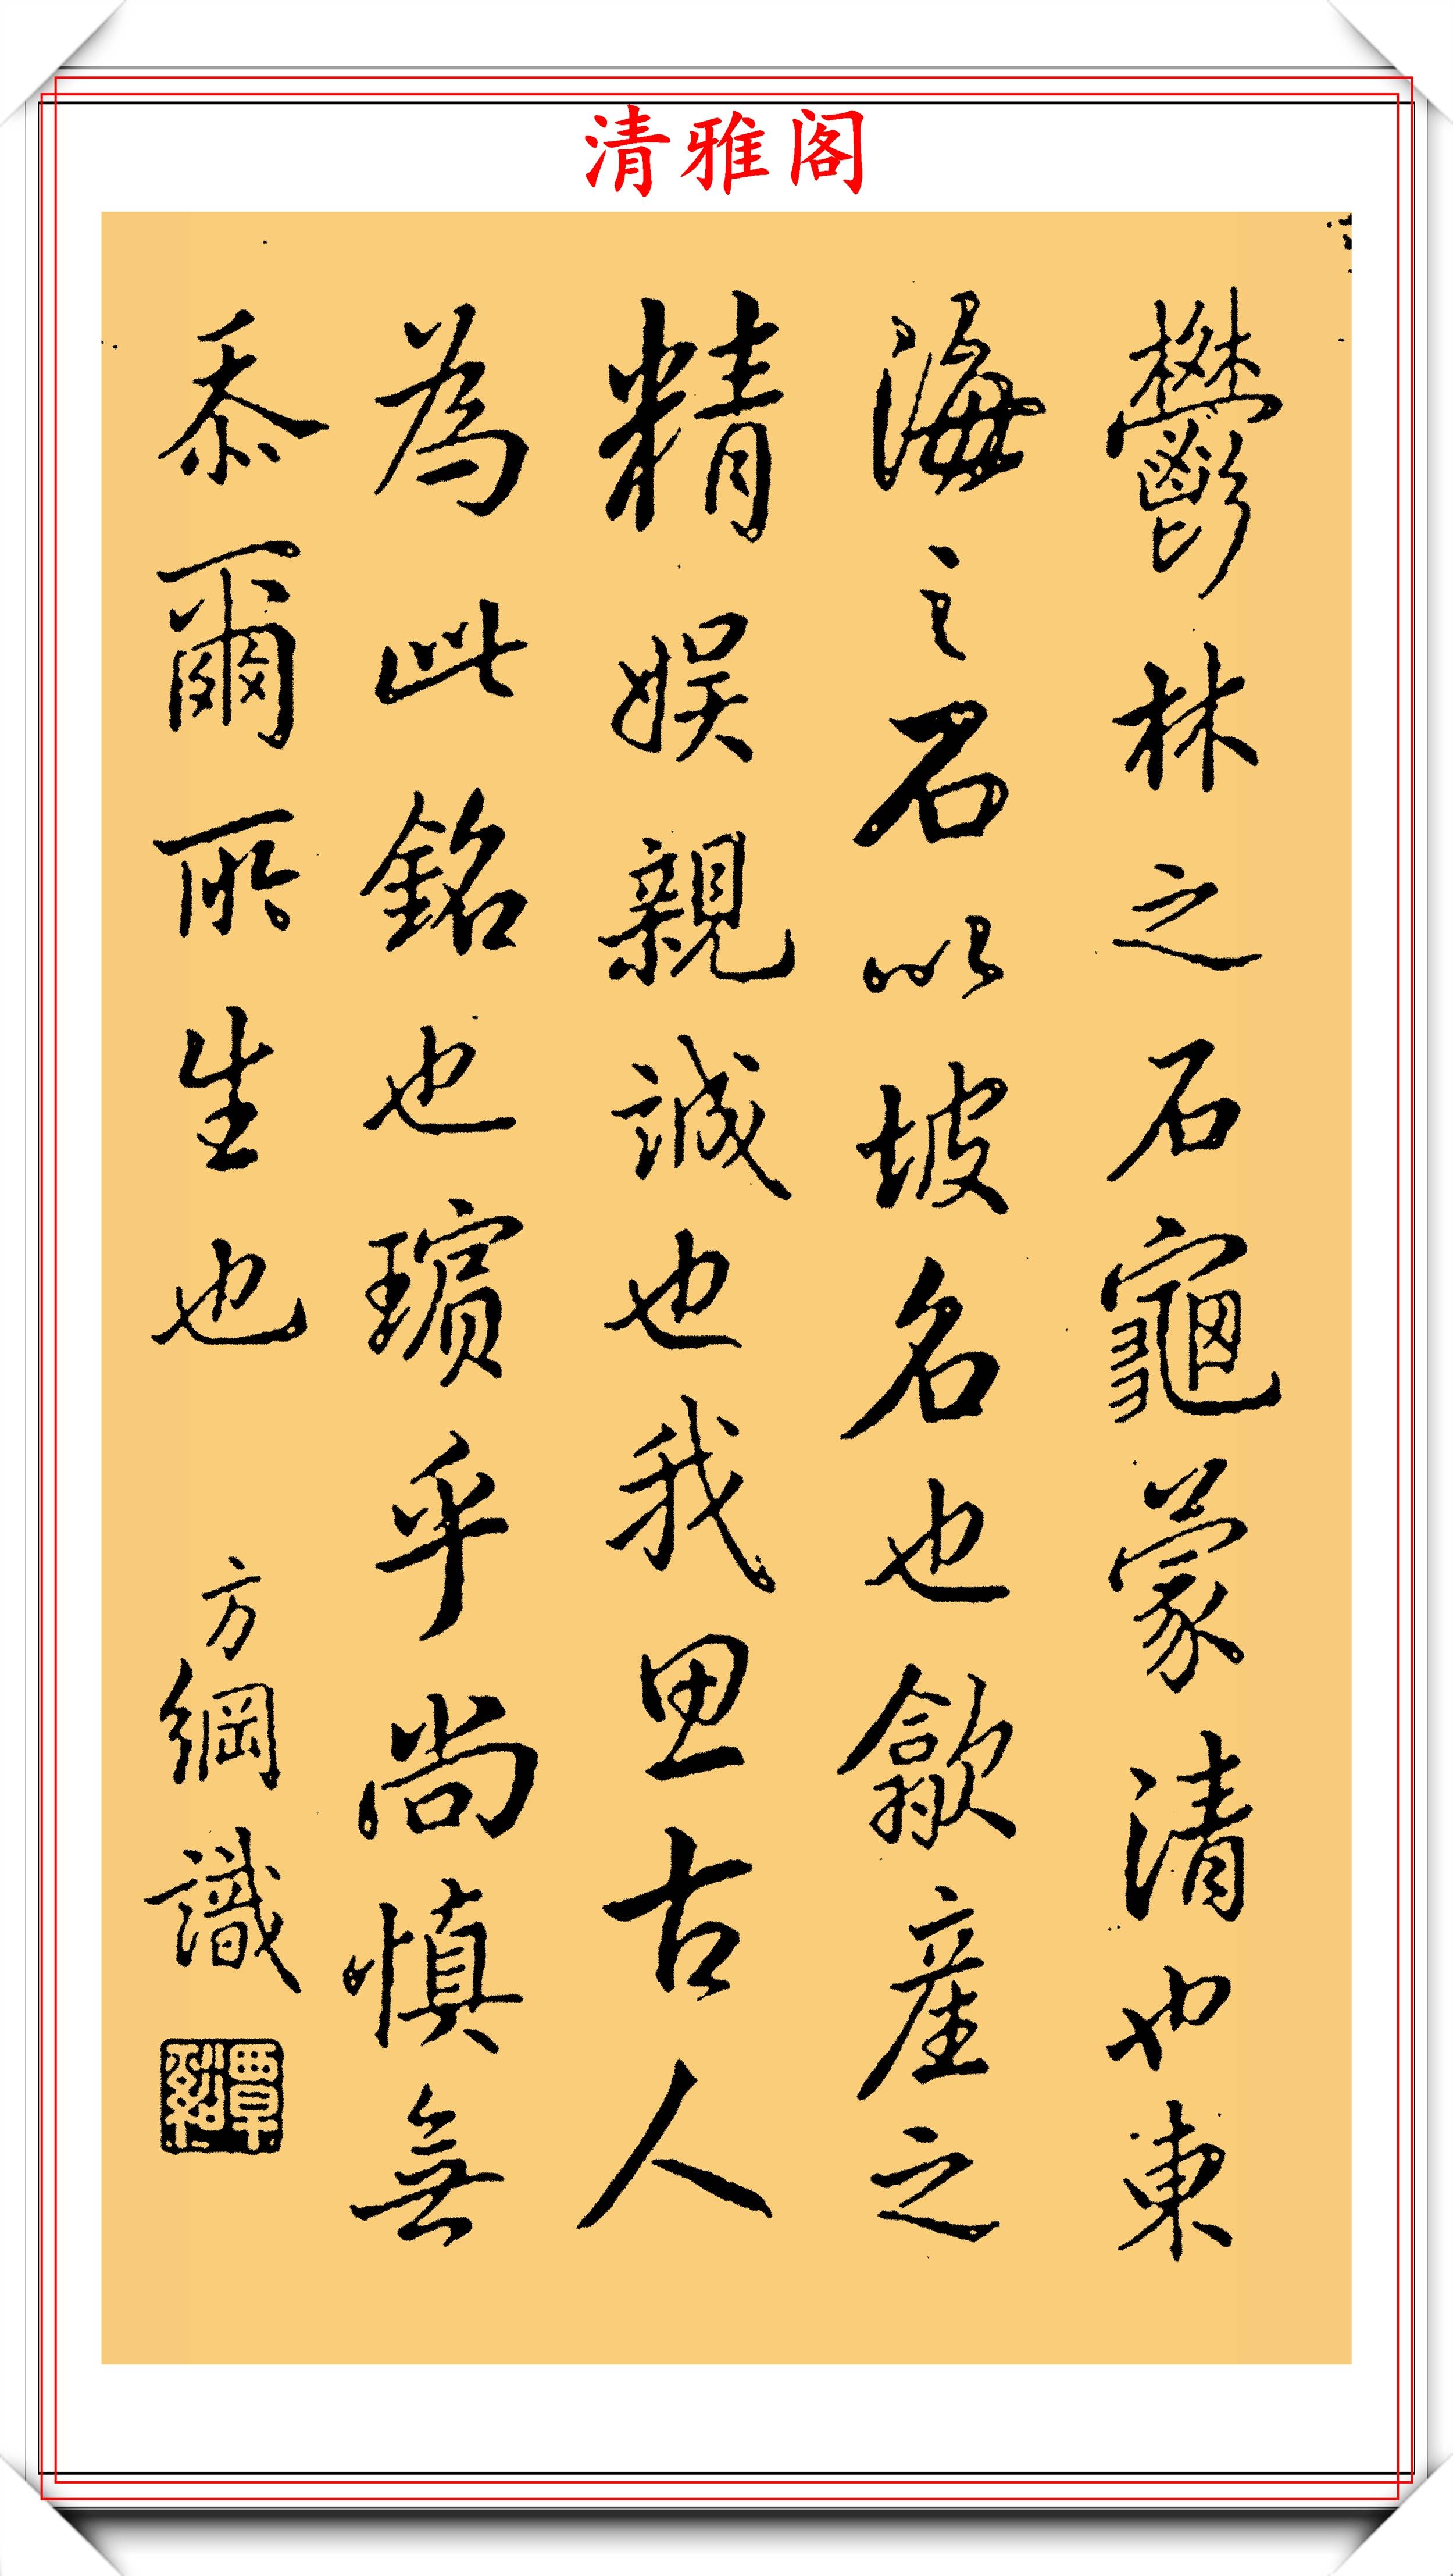 清雅阁
鬱林之石龜蒙清也東
海之石以坡名也歙産之
精娱親誠也我思古人
為此銘也璸乎尚慎無
忝爾所生也 方綱識
覃谿